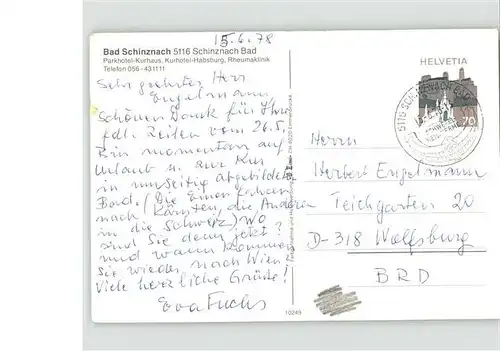 15.6.78
Bad Schinznach 5116 Schinznach Bad
Parkhotel-Kurhaus, Kurhotel-Habsburg, Rheumaklinik
Telefon 056-431111
Sehr geehrter Herr
Engelmann
Schönen Dank für Ihre
fdl. Zeilen vom 26.5.
Bin momentan auf
Urlaub u. zur Kur
in umseitig abgebildeten
Bad. (Die Einen fahren
nach Kärnten, die Anderen
in die Schweiz) Wo
sind Sie denn jetzt?
und wann kommen
Sie wieder nach Wien?
Viele herzliche Grüße!
Eva Fuchs
HELVETIA
5116 SCHINZNACH BAD
70
Herrn
Herbert Engelmann
Teichgarten 20
D-318 Wolfsburg
BRD
10249